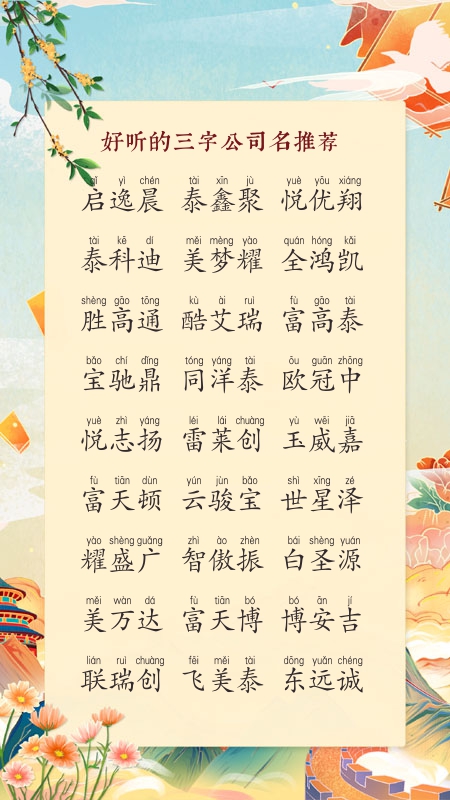 好听的三字公司名推荐
qǐ yì chén tài xīn jù yuè yōu xiáng
启逸晨 泰鑫聚 悦优翔
tài kē dí měi mèng yào quán hóng kǎi
泰科迪 美梦耀 全鸿凯
shèng gāo tōng kù ài ruì fù gāo tài
胜高通 酷艾瑞 富高泰
bǎo chí dǐng tóng yáng tài ōu guān zhōng
宝驰鼎 同洋泰 欧冠中
yuè zhì yáng léi lái chuàng yù wēi jiā
悦志扬 雷莱创 玉威嘉
fù tiān dùn yún jùn bǎo shì xīng zé
富天顿 云骏宝 世星泽
yào shèng guǎng zhì ào zhèn bái shèng yuán
耀盛广 智傲振 白圣源
měi wàn dá fù tiān bó bó ān jí
美万达 富天博 博安吉
lián ruì chuàng fēi měi tài dōng yuǎn chéng
联瑞创 飞美泰 东远诚